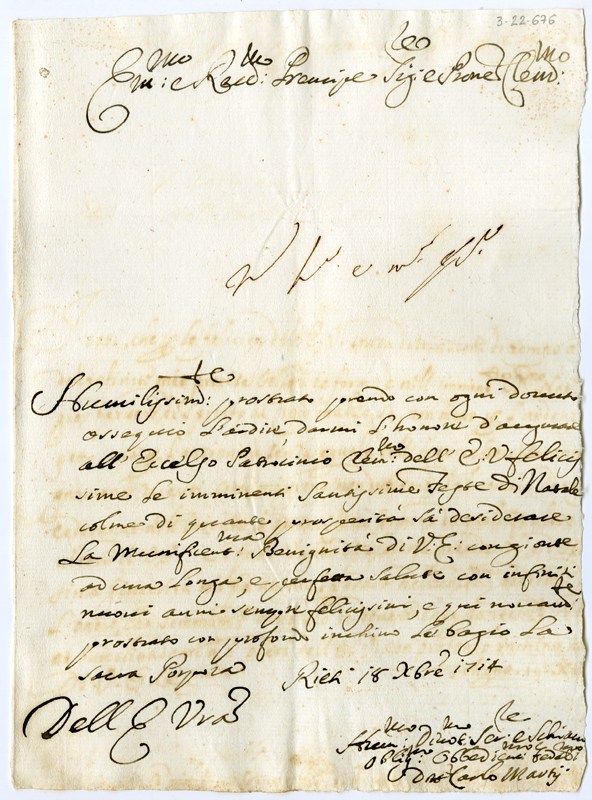 3-22-676
Em:mo e Re.d:mo Prencipe Sig:re e Prone Clem:mo
Humilissim:te prostrato prendo con ogni dovuto
ossequio l'ardire darmi l'honore d'augurare
all' Eccelso Patrocinio Clem:mo dell' E: V: felicis
sime le imminenti Santissime Feste di Natale
colme di quante prosperità sà desiderare
La Munificent:ma Benignità di V: E: congionte
ad una longa, e perfetta salute con infiniti
nuovi anni sempre felicissimi, e qui novam:te
prostrato con profondo inchino Le bagio La
sacra Porpora Rieti 18 Xbre 1714
Dell E Vra
Hum:mo Divot:mo Ser:re e Schiavo
Oblig:mo Obbedient:mo
Carlo